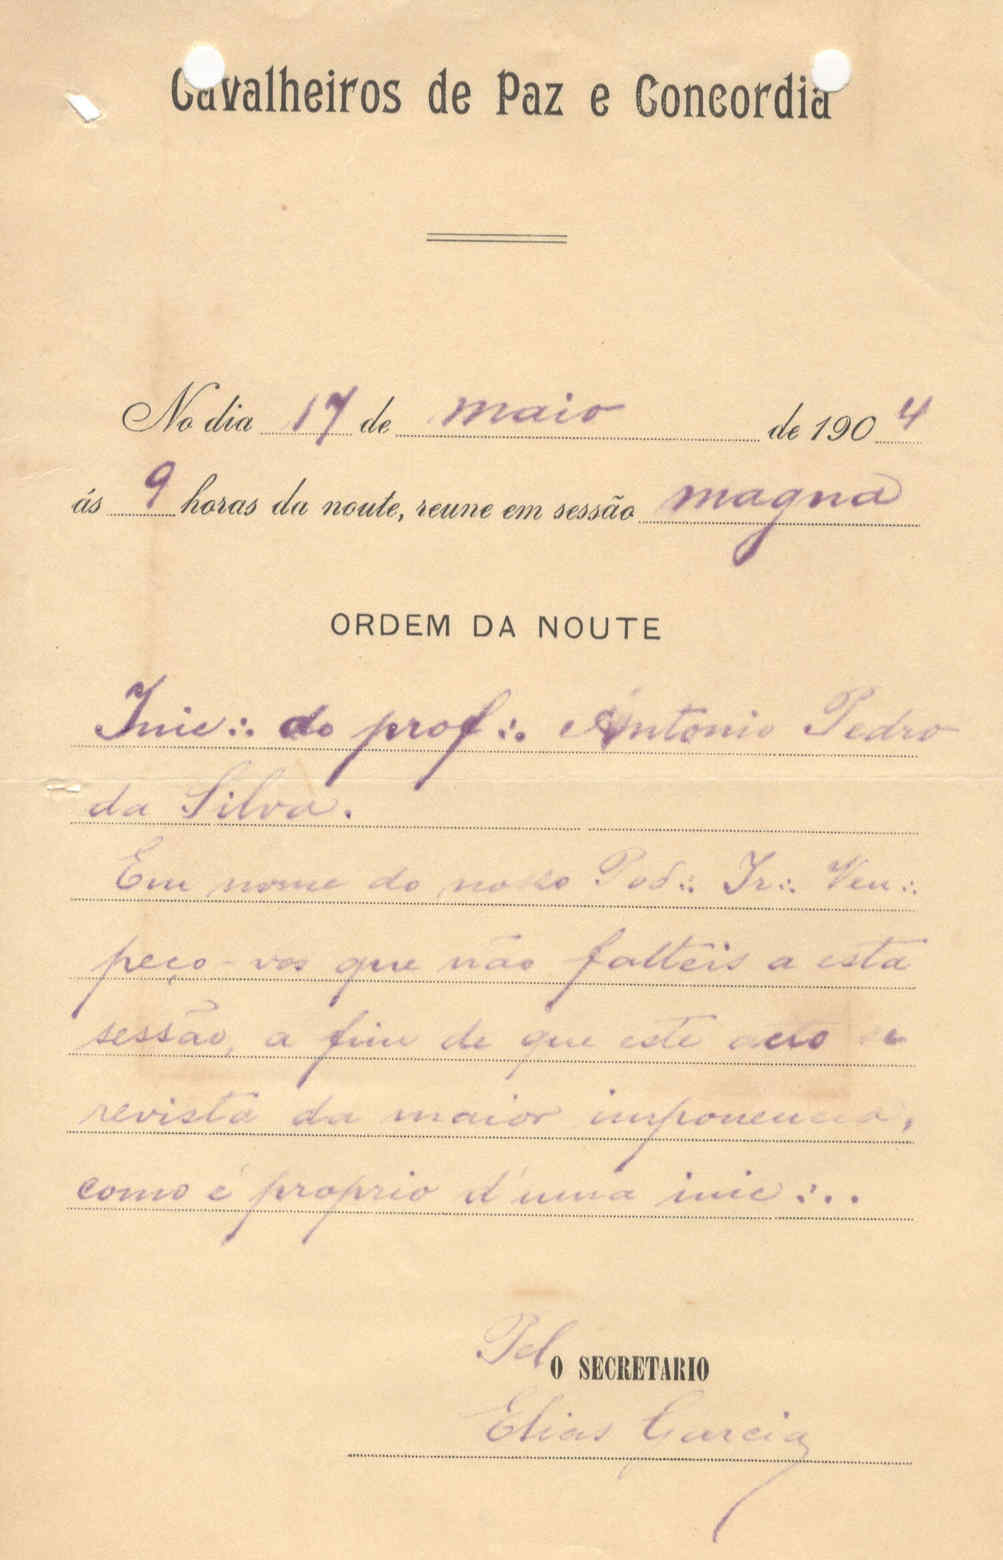 Cavalheiros de Paz e Concordia
No dia 17 de maio de 1904
ás 9 horas da noute, reune em sessão magna
ORDEM DA NOUTE
Inic∴ do prof∴ Antonio Pedro
da Silva.
Em nome do nosso Pod∴ Ir∴ Ven∴
peço-vos que não falteis a esta
sessão, a fim de que este acto se
revista da maior imponencia,
como é proprio d'uma inic∴.
Pel O SECRETARIO
Elias Garcia